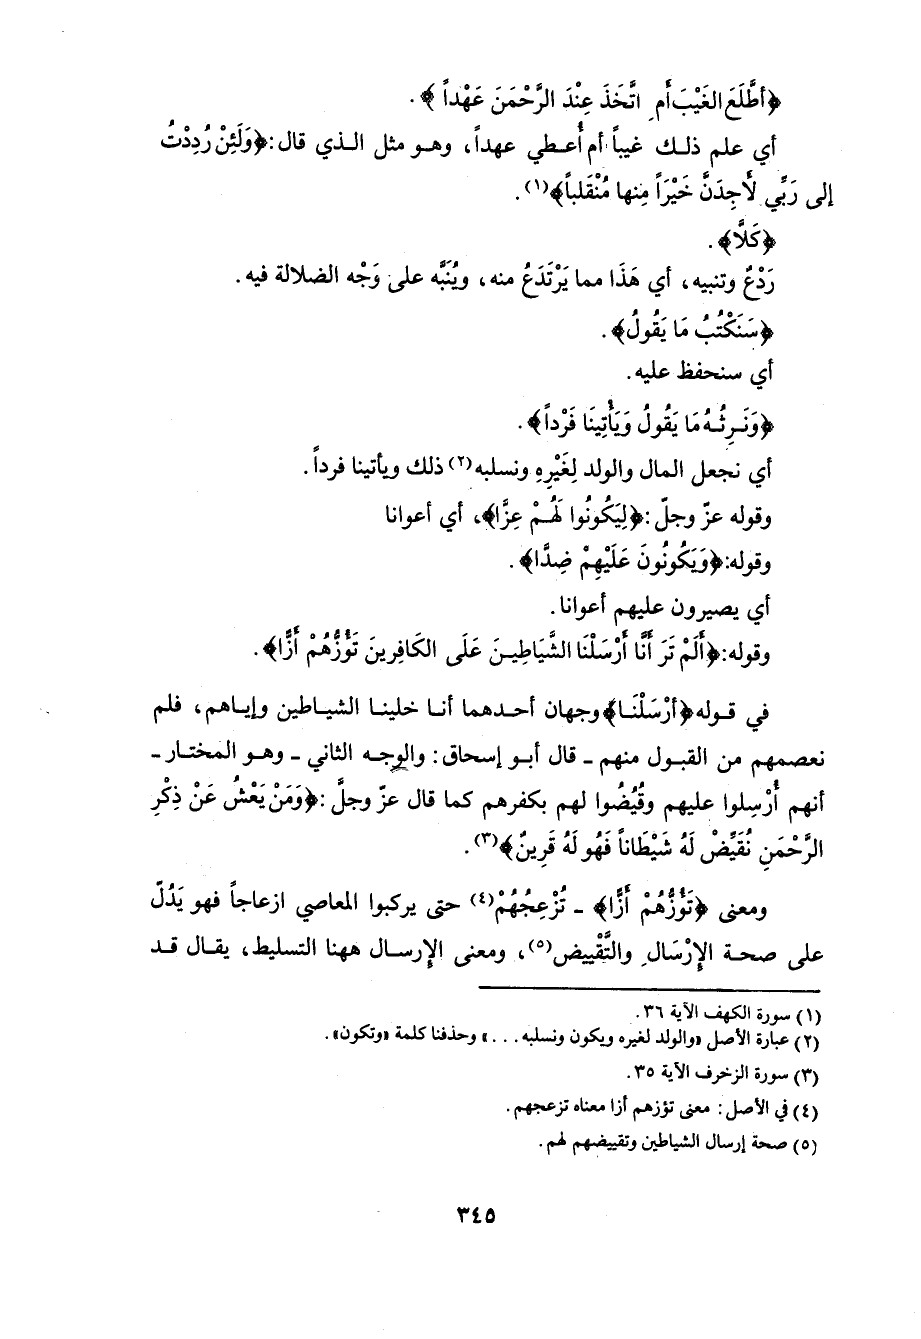 ﴿أطَّلَعَ الغَيْبَ أَمِ اتَّخَذَ عِنْدَ الرَّحْمَنَ عَهْداً ﴾.
أي علم ذلك غيباً أم أُعطي عهداً، وهو مثل الذي قال: ﴿وَلَئِنْ رُدِدْتُ
إلى رَبِّي لأَجِدَنَّ خَيْرَاً مِنها مُنْقَلباً﴾(١).
﴿كَلَّا﴾.
رَدْعٌ وتنبيه، أي هَذَا مما يَرْتَدَعُ منه، ويُنَبَّه على وَجْه الضلالة فيه.
﴿سَنَكْتُبُ مَا يَقُولُ﴾.
أي سنحفظ عليه.
﴿وَنَرِثُهُ مَا يَقُولُ وَيَأْتِينَا فَرْداً﴾.
أي نجعل المال والولد لِغَيْرِهِ ونسلبه(٢) ذلك ويأتينا فرداً.
وقوله عزّ وجلّ: ﴿لِيَكُونُوا لَهُمْ عِزًّا﴾، أي أعوانا
وقوله: ﴿وَيَكُونُونَ عَلَيْهِمْ ضِدًّا﴾.
أي يصيرون عليهم أعوانا.
وقوله: ﴿أَلَمْ تَرَ أَنَّا أَرْسَلْنَا الشَّيَاطِينَ عَلَى الكَافِرينَ تَؤُزُّهُمْ أَزًّا﴾.
في قوله ﴿أرْسَلْنَا﴾ وجهان أحدهما أنا خلينا الشياطين وإياهم، فلم
نعصمهم من القبول منهم ـ قال أبو إسحاق: والوجه الثاني ـ وهو المختار ـ
أنهم أُرْسِلوا عليهم وقُيِّضُوا لهم بكفرهم كما قال عزّ وجلَّ: ﴿وَمَنْ يَعْشُ عَنْ ذِكْرِ
الرَّحْمَنِ نُقَيِّضْ لَهُ شَيْطَاناً فَهُو لَهُ قَرِينٌ﴾(٣).
ومعنى ﴿تَؤُزُّهُمْ أَزًّا﴾ ـ تُزْعِجُهُمْ(٤) حتى يركبوا المعاصي ازعاجاً فهو يَدُلّ
على صحة الإِرْسَالِ والتَّقْييض(٥)، ومعنى الإِرسال ههنا التسليط، يقال قد
(١) سورة الكهف الآية ٣٦.
(٢) عبارة الأصل «والولد لغيره ويكون ونسلبه...» وحذفنا كلمة «وتكون».
(٣) سورة الزخرف الآية ٣٥.
(٤) في الأصل: معنى تؤزهم أزا معناه تزعجهم.
(٥) صحة إرسال الشياطين وتقييضهم لهم.
٣٤٥